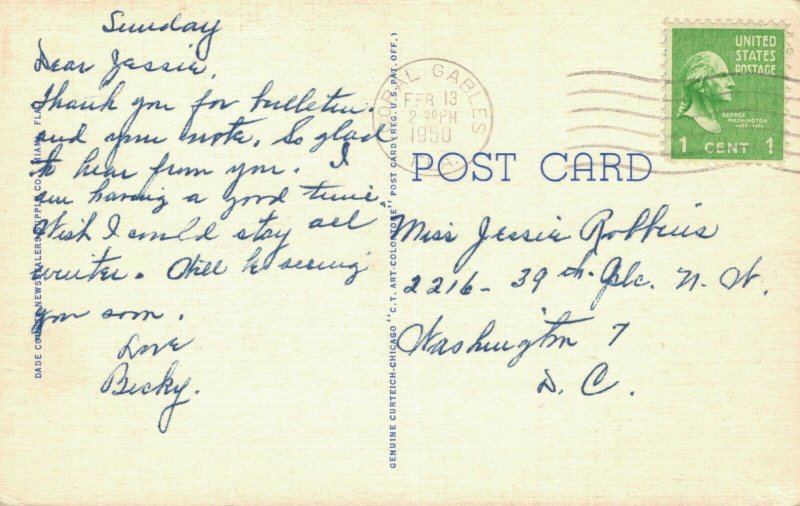 Sunday
Dear Jessie,
Thank you for bulletin
and your note. So glad
to hear from you. I
am having a good time.
Wish I could stay all
winter. Will be seeing
you soon.
Love
Becky.
DADE COUNTY NEWSDEALERS SUPPLY CO. MIAMI, FLA.
GENUINE CURTEICH-CHICAGO "C.T. ART-COLORTONE" POST CARD (REG. U.S. PAT. OFF.)
CORAL GABLES
FEB 13
2 PM
1950
UNITED
STATES
POSTAGE
GEORGE
WASHINGTON
1 CENT 1
POST CARD
Miss Jessie Robbins
2216- 39th Plc. N. W.
Washington 7
D. C.